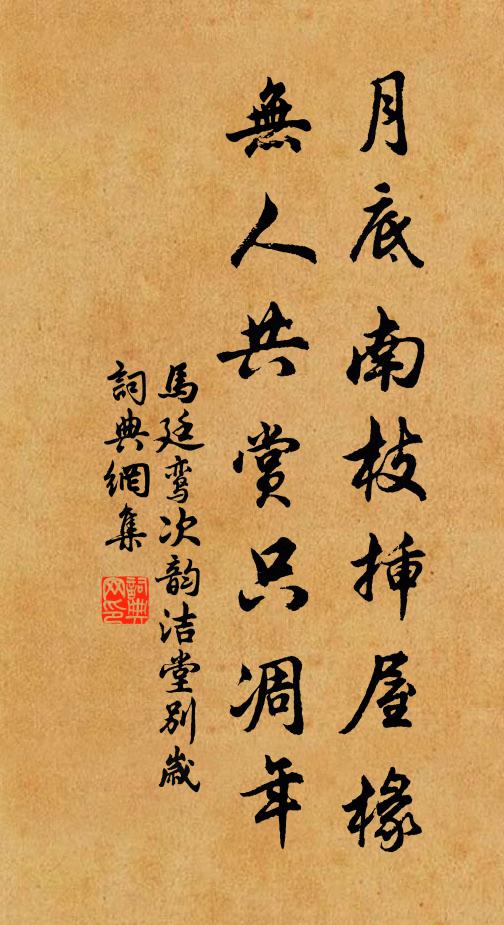 月底南枝插屋椽
無人共賞只凋年
馬廷鸞次韵洁堂別歲
詞典網集
詞典網印